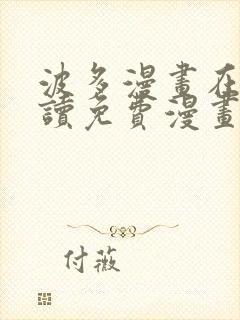 波多漫畫在
讀免費漫畫
付薇